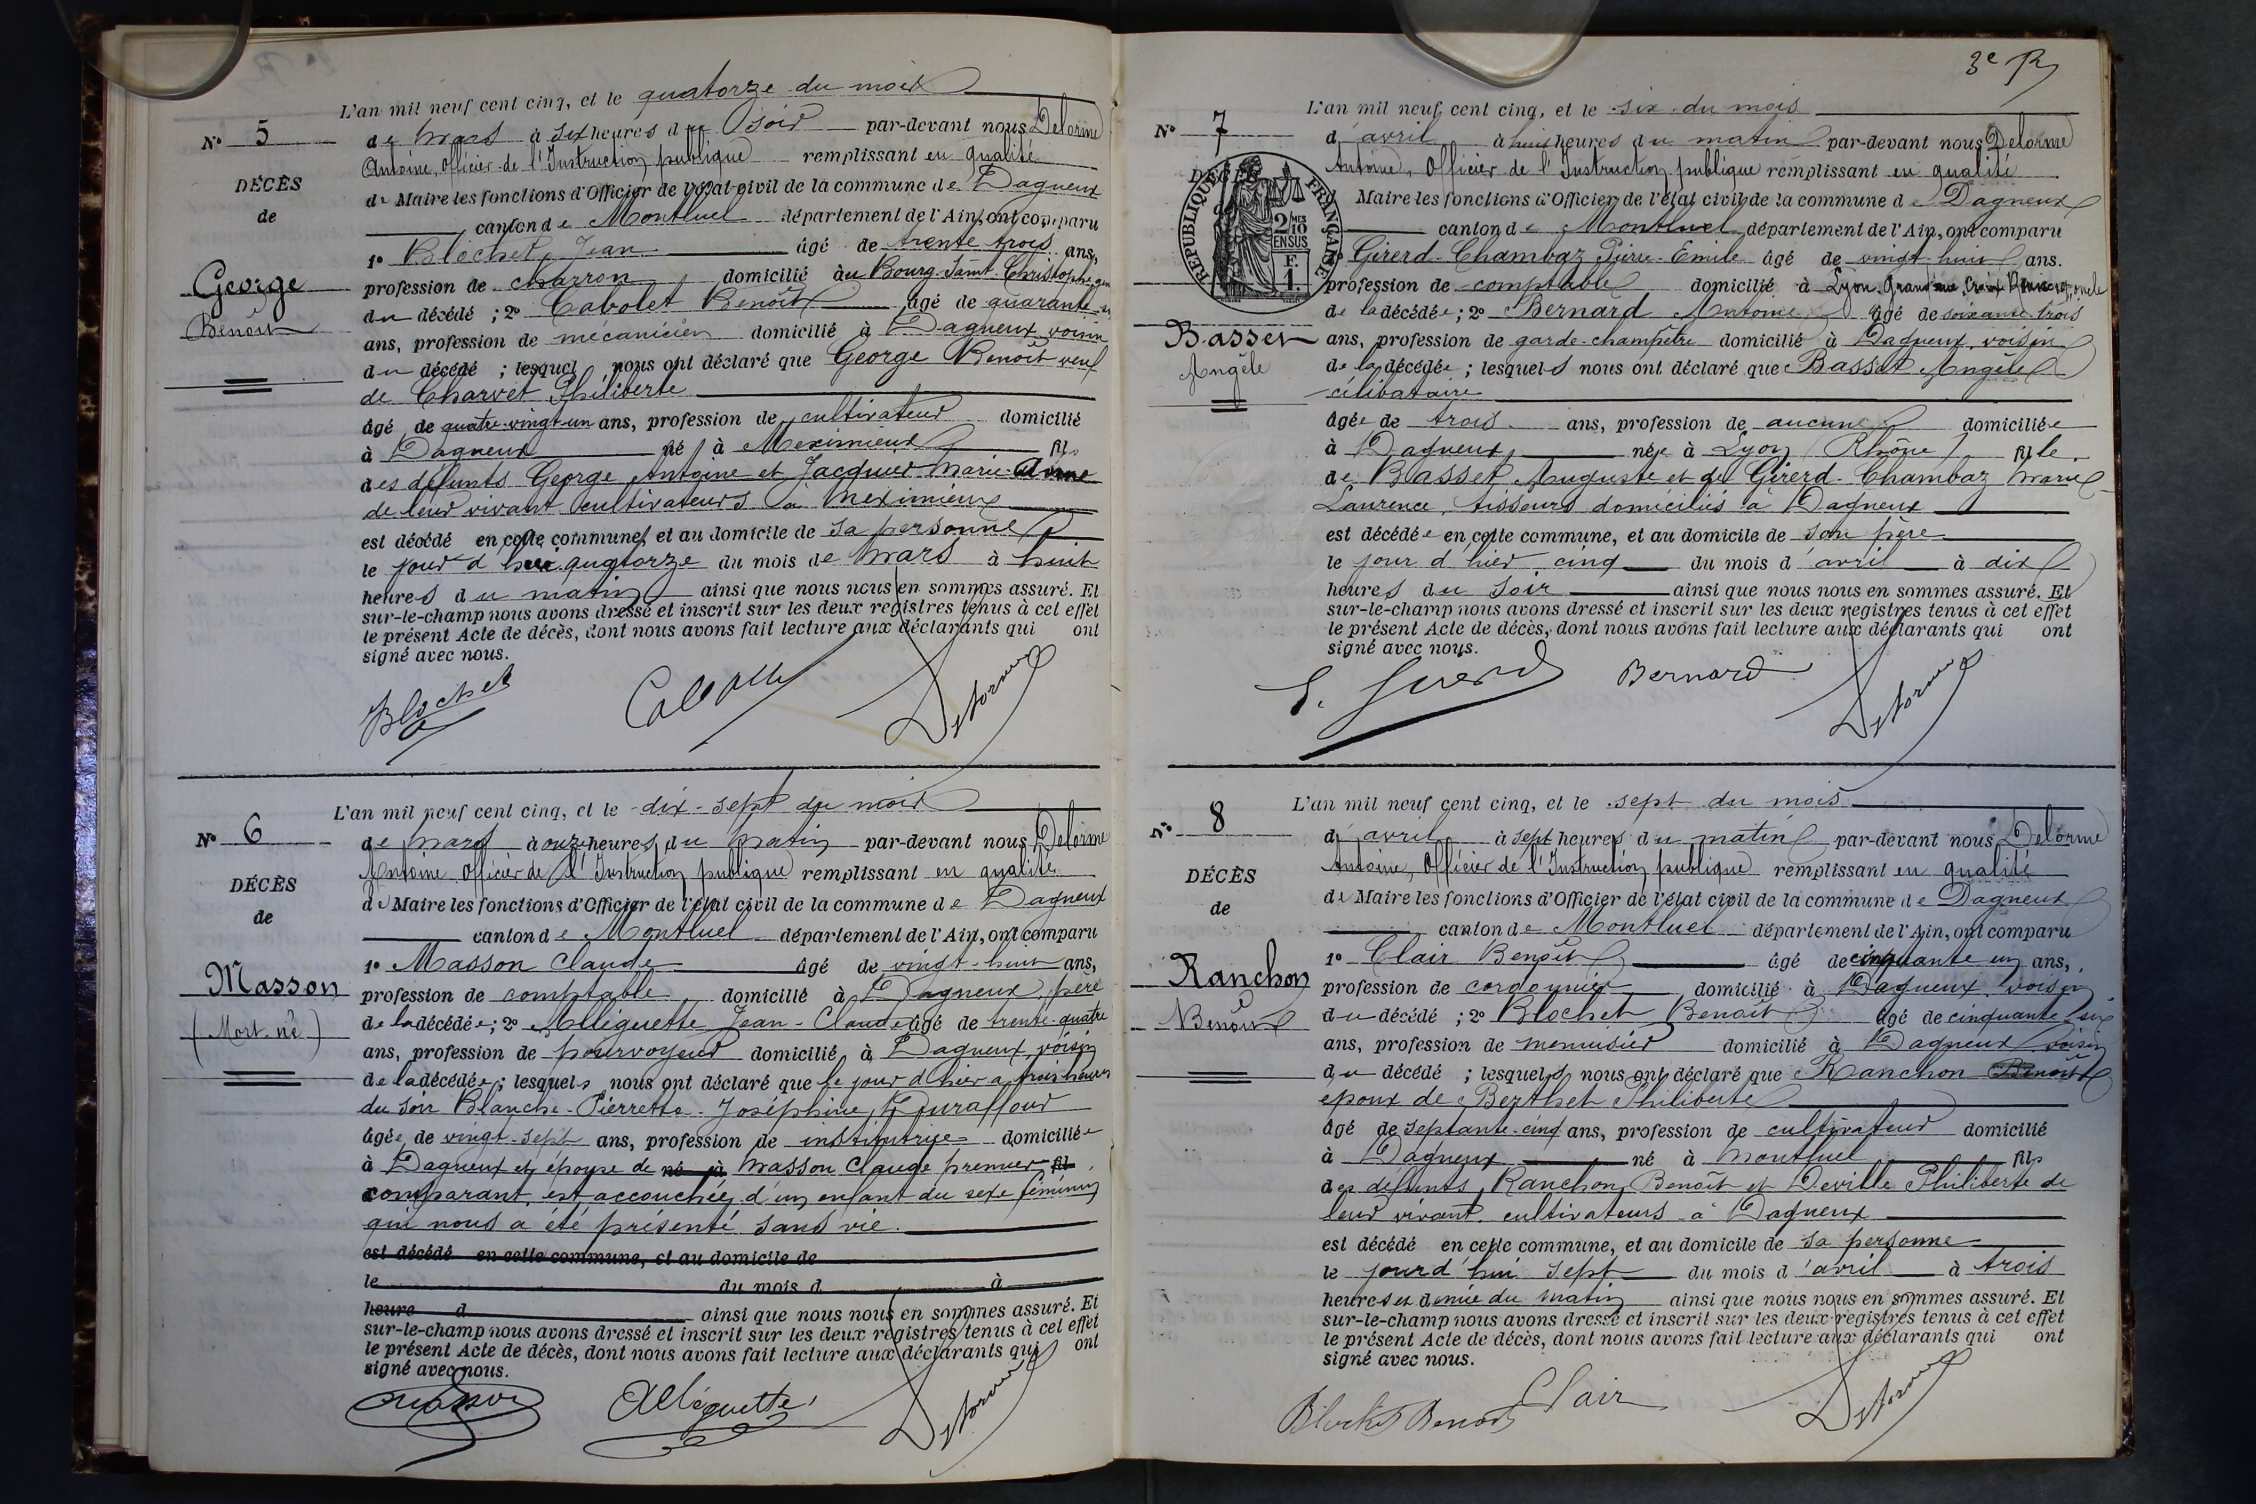 L'an mil neuf cent cinq, et le quatorze du mois
N° 5
de Mars à six heures du soir par-devant nous Delorme
Antoine, Officier de l'Instruction publique remplissant en qualité
DÉCÈS
de Maire les fonctions d'Officier de l'état civil de la commune de Dagneux
de
canton de Montluel département de l'Ain, ont comparu
1° Blochet Jean âgé de trente trois ans,
George
profession de charron domicilié au Bourg-Saint-Christophe
Benoit
du décédé ; 2° Cabolet Benoît âgé de quarante
ans, profession de mécanicien domicilié à Dagneux, voisin
du décédé ; lesquels nous ont déclaré que George Benoît veuf
de Charvet Philiberte
âgé de quatre-vingt-un ans, profession de cultivateur domicilié
à Dagneux né à Meximieux fils
des défunts George Antoine et Jacquier Marie-Anne
de leur vivant cultivateurs à Meximieux
est décédé en cette commune, et au domicile de sa personne
le jour d'hui quatorze du mois de Mars à huit
heures du matin ainsi que nous nous en sommes assuré. Et
sur-le-champ nous avons dressé et inscrit sur les deux registres tenus à cet effet
le présent Acte de décès, dont nous avons fait lecture aux déclarants qui ont
signé avec nous.
Blochet Delorme
L'an mil neuf cent cinq, et le dix-sept du mois
N° 6
de Mars à onze heures du matin par-devant nous Delorme
Antoine Officier de l'Instruction publique remplissant en qualité
DÉCÈS
de Maire les fonctions d'Officier de l'état civil de la commune de Dagneux
de
canton de Montluel département de l'Ain, ont comparu
1° Masson Claude âgé de vingt-huit ans,
Masson
profession de comptable domicilié à Dagneux, père
(Mort-né)
de la décédée ; 2° Alléguette Jean-Claude âgé de trente-quatre
ans, profession de pourvoyeur domicilié à Dagneux, voisin
de la décédée ; lesquels nous ont déclaré que le jour d'hier à trois heures
du soir Blanche-Pierrette-Joséphine Duraffour
âgée de vingt-sept ans, profession de institutrice domiciliée
à Dagneux et épouse de né à Masson Claude premier fil
comparant, est accouchée d'un enfant du sexe féminin
qui nous a été présenté sans vie.
est décédé en cette commune, et au domicile de
le du mois d à
heure d ainsi que nous nous en sommes assuré. Et
sur-le-champ nous avons dressé et inscrit sur les deux registres tenus à cet effet
le présent Acte de décès, dont nous avons fait lecture aux déclarants qui ont
signé avec nous.
Masson Alléguette Delorme
3e R
L'an mil neuf cent cinq, et le six du mois
N° 7
d'avril à huit heures du matin par-devant nous Delorme
Antoine, Officier de l'Instruction publique remplissant en qualité
DÉCÈS
RÉPUBLIQUE FRANÇAISE
2/10MES EN SUS
F. 1.
Maire les fonctions d'Officier de l'état civil de la commune de Dagneux
canton de Montluel département de l'Ain, ont comparu
Girerd-Chambaz Pierre-Emile âgé de vingt-huit ans.
profession de comptable domicilié à Lyon, Grand'rue Croix Rousse oncle
de la décédée ; 2° Bernard Antoine âgé de soixante trois
Basset
ans, profession de garde-champêtre domicilié à Dagneux, voisin
Angèle
de la décédée ; lesquels nous ont déclaré que Basset Angèle
célibataire
âgée de trois ans, profession de aucune domiciliée
à Dagneux née à Lyon (Rhône) fille
de Basset Auguste et de Girerd-Chambaz Marie
Laurence, tisseurs domiciliés à Dagneux
est décédée en cette commune, et au domicile de son père
le jour d'hier cinq du mois d'avril à dix
heures du soir ainsi que nous nous en sommes assuré. Et
sur-le-champ nous avons dressé et inscrit sur les deux registres tenus à cet effet
le présent Acte de décès, dont nous avons fait lecture aux déclarants qui ont
signé avec nous.
Bernard Delorme
L'an mil neuf cent cinq, et le sept du mois
N° 8
d'avril à sept heures du matin par-devant nous Delorme
Antoine, Officier de l'Instruction publique remplissant en qualité
DÉCÈS
de Maire les fonctions d'Officier de l'état civil de la commune de Dagneux
de
canton de Montluel département de l'Ain, ont comparu
1° Clair Benoît âgé de cinquante un ans,
Ranchon
profession de cordonnier domicilié à Dagneux, voisin
Benoît
du décédé ; 2° Blochet Benoît âgé de cinquante six
ans, profession de menuisier domicilié à Dagneux voisin
du décédé ; lesquels nous ont déclaré que Ranchon Benoît
époux de Berthet Philiberte
âgé de septante-cinq ans, profession de cultivateur domicilié
à Dagneux né à Montluel fils
des défunts Ranchon Benoît et Deville Philiberte de
leur vivant cultivateurs à Dagneux
est décédé en cette commune, et au domicile de sa personne
le jour d'hui sept du mois d'avril à trois
heures et demie du matin ainsi que nous nous en sommes assuré. Et
sur-le-champ nous avons dressé et inscrit sur les deux registres tenus à cet effet
le présent Acte de décès, dont nous avons fait lecture aux déclarants qui ont
signé avec nous.
Blochet Benoit Clair Delorme